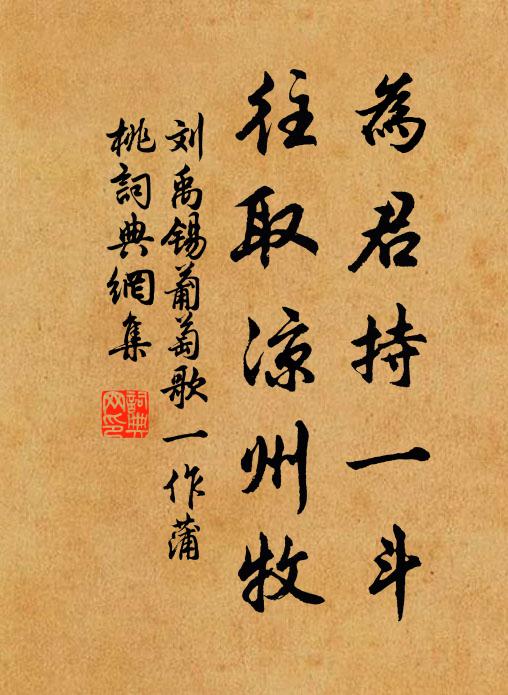 為君持一斗
往取凉州牧
刘禹锡葡萄歌一作蒲
桃詞典網集
詞典网印